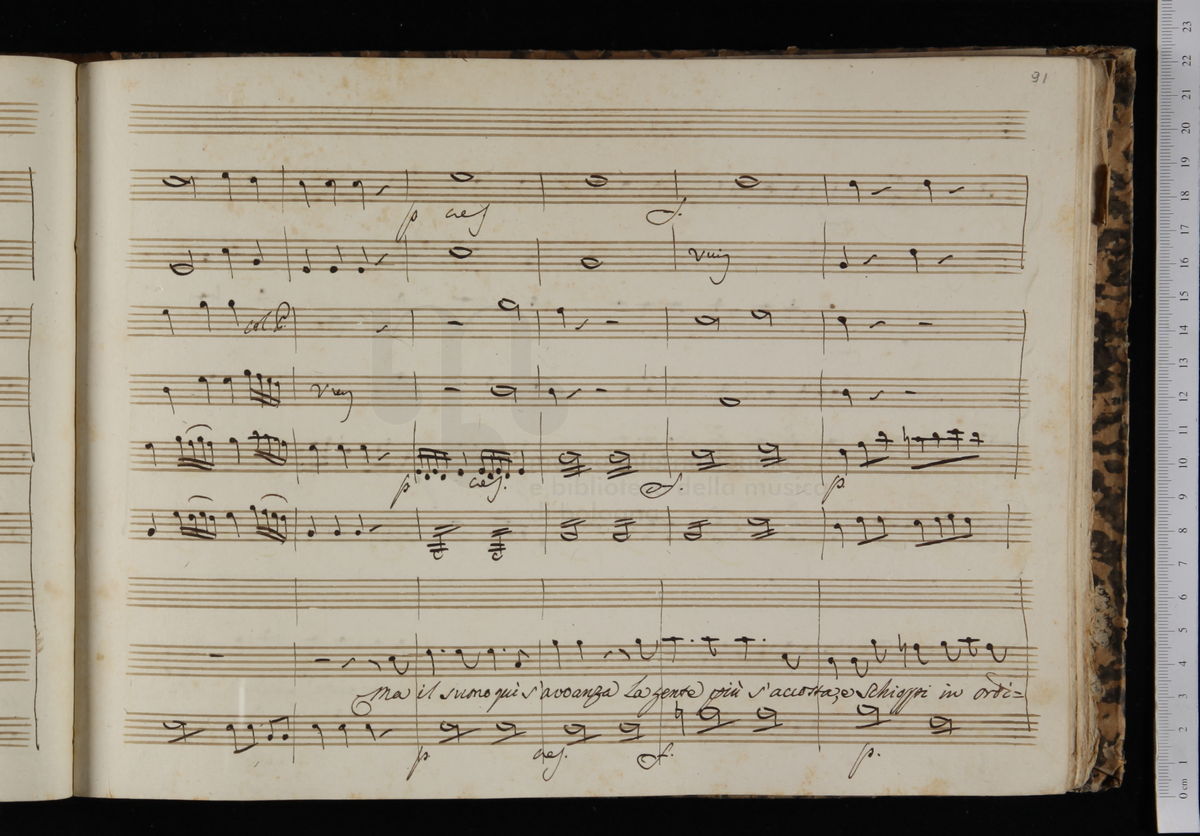 91
p cres f.
Unis
col B.
Unis
p cres. f p
e biblioteca della musica
bologna
Ma il suono qui s'avvanza la gente più s'accosta, e Schioppi in ordi=
p. cres. f. p.
23
22
21
20
19
18
17
16
15
14
13
12
11
10
9
8
7
6
5
4
3
2
1
0 cm